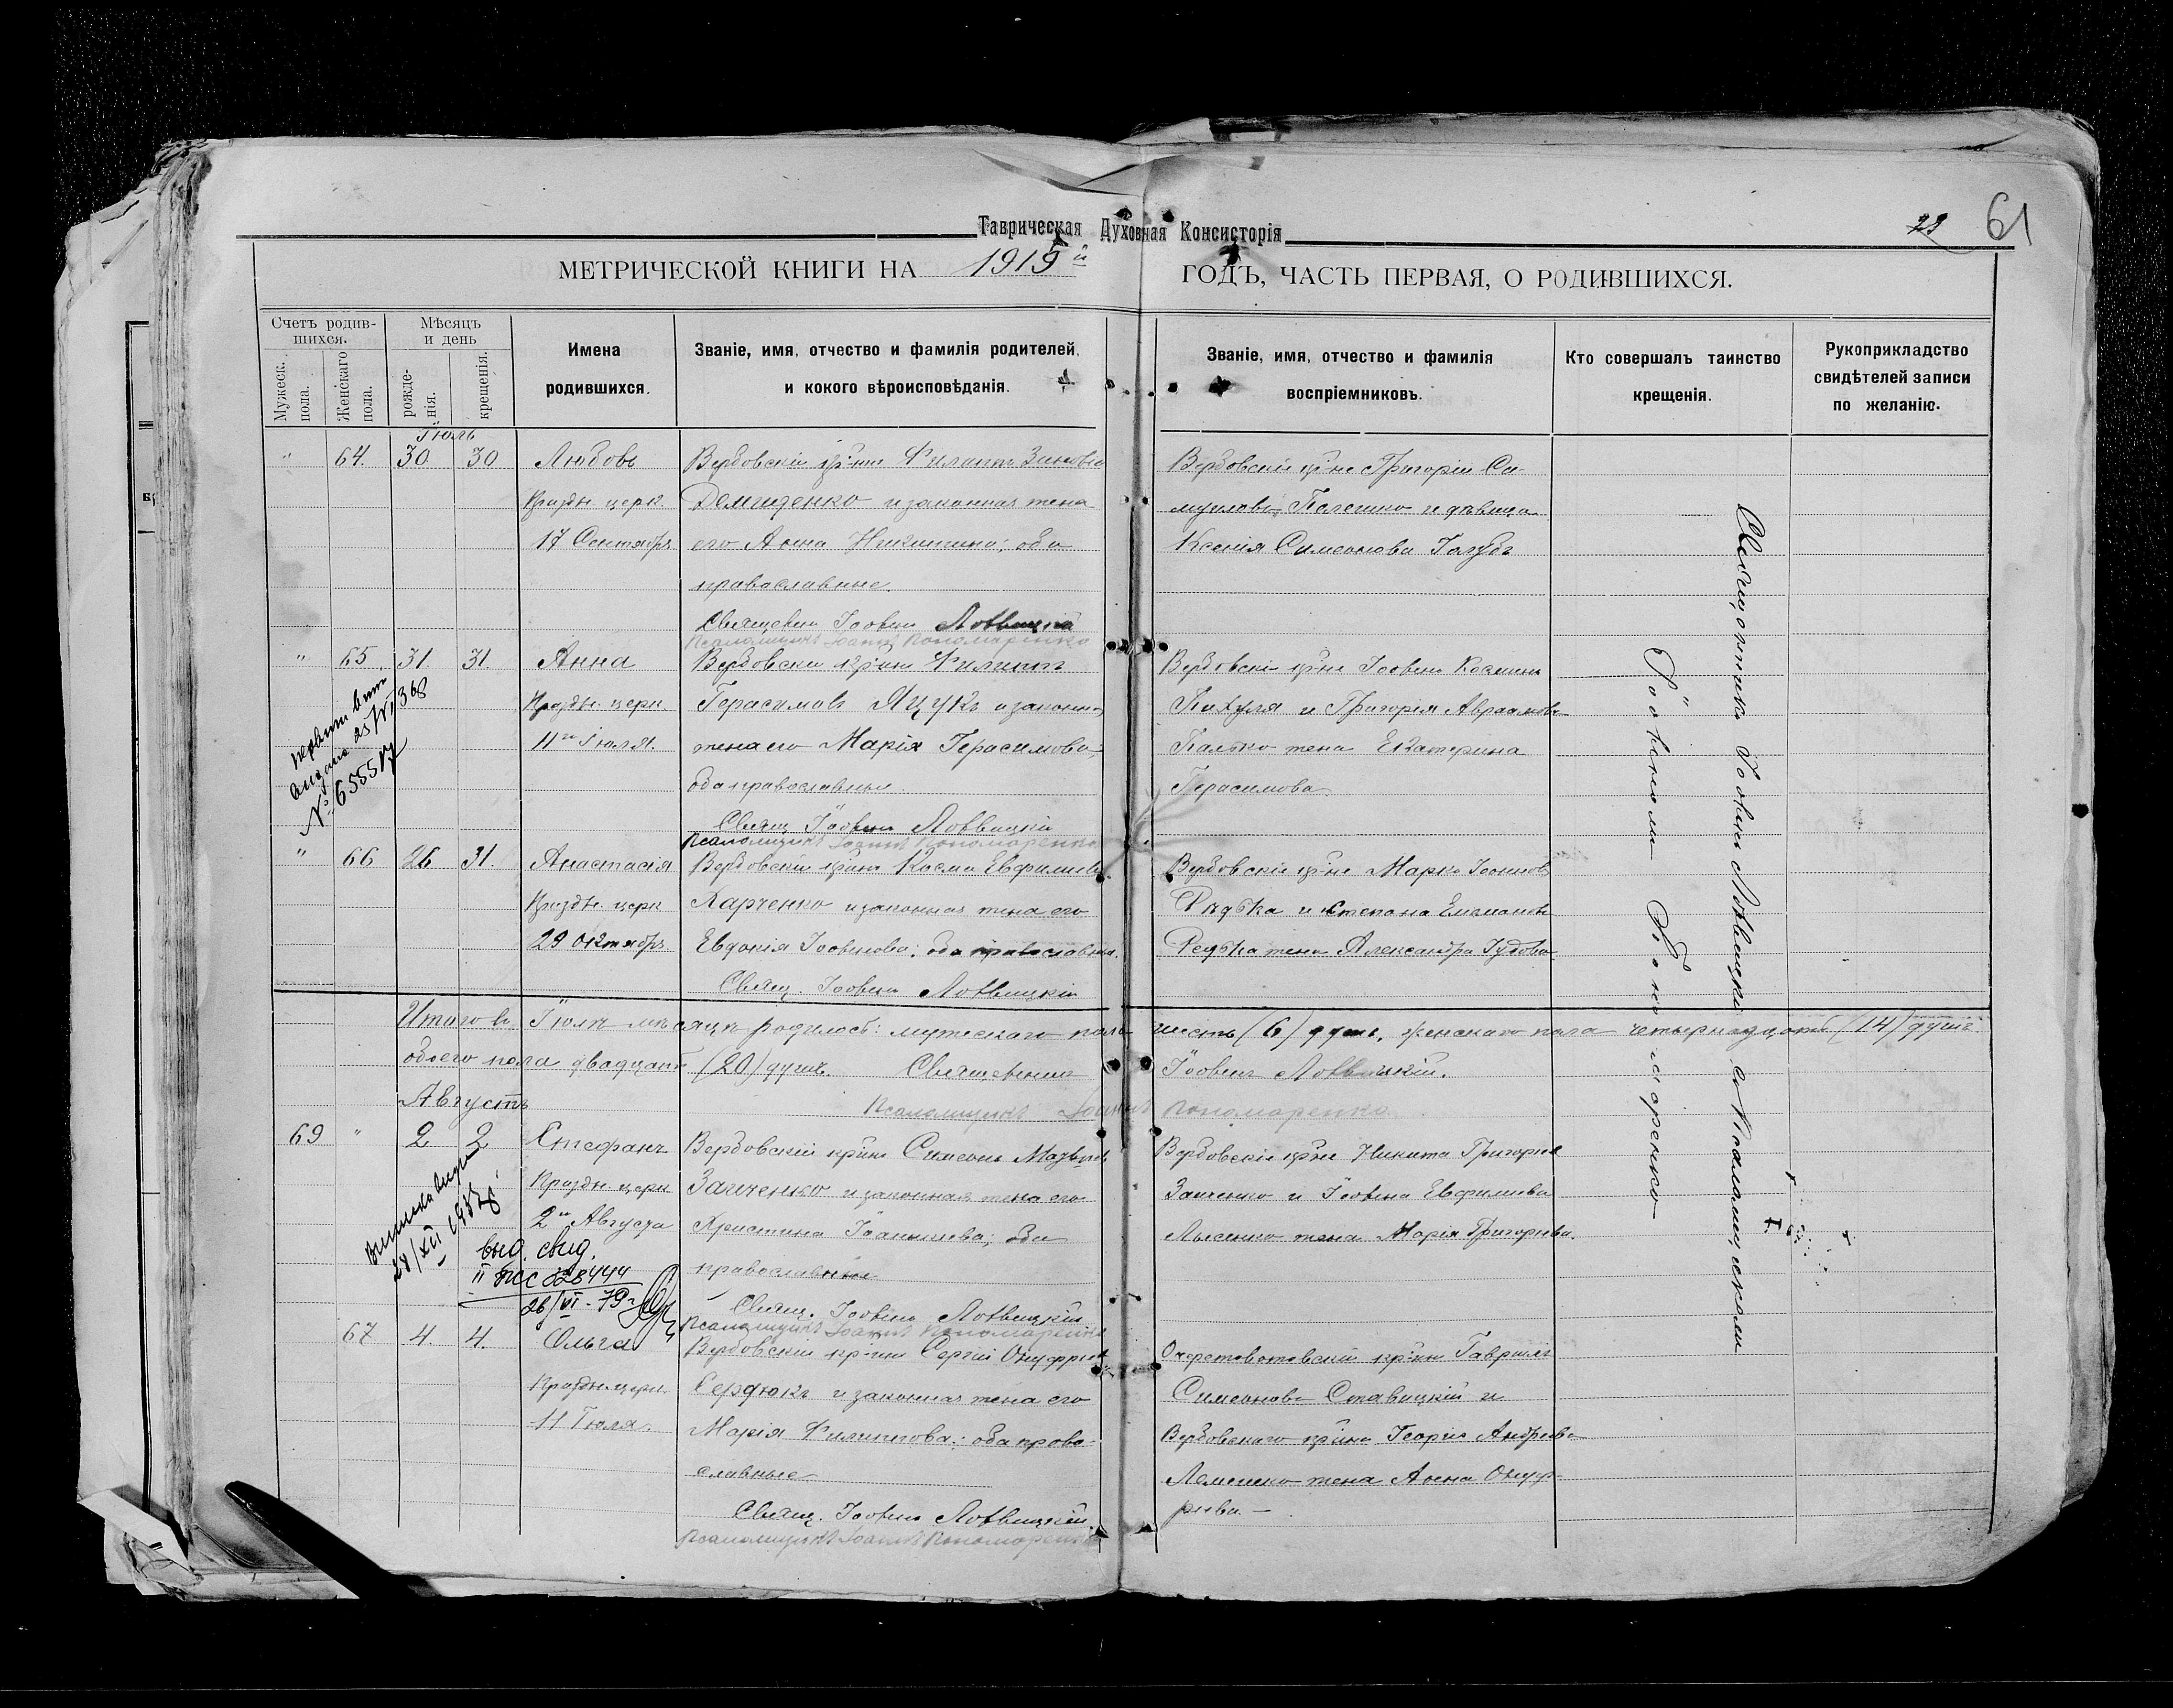 Таврическая Духовная Консисторія
28 61
МЕТРИЧЕСКОЙ КНИГИ НА 1915й ГОДЪ, ЧАСТЬ ПЕРВАЯ, О РОДИВШИХСЯ.
Счетъ родив-
шихся.
Мужеск.
пола.
Женскаго
пола.
Мѣсяцъ
и день
рожде-
нія.
крещенія.
Имена
родившихся.
Званіе, имя, отчество и фамилія родителей,
и кокого вѣроисповѣданія.
Званіе, имя, отчество и фамилія
воспріемниковъ.
Кто совершалъ таинство
крещенія.
Рукоприкладство
свидѣтелей записи
по желанію.
Іюль
" 64. 30 30 Любовь
Праздн. церк.
17 Сентября
Вербовскій кр-нъ Филиппъ
Демиденко и законная жена
его Анна Никитина; оба
православные.
Священникъ Іовинъ Лотвицкій
Псаломщикъ Іоаннъ Пономаренко
Вербовскіе кр-не Григорій Са-
муиловъ и дѣвица
Ксенія Симеонова
" 65 31 31 Анна
Праздн. церк.
11го Іюля.
Вербовскій кр-нъ Филиппъ
Герасимовъ Яцукъ и законн.
жена его Марія Герасимова;
оба православные.
Свящ. Іовинъ Лотвицкій
Псаломщикъ Іоаннъ Пономаренко
Вербовскіе кр-не Іовинъ Косминъ
Пихуля и Григорія Авраамова
Палько жена Екатерина
Герасимова.
№ 655517
" 66 26 31. Анастасія
Праздн. церк.
29 Октября
Вербовскій кр-нъ Косма Евфиміевъ
Харченко и законная жена его
Евдокія Іовинова; оба православные.
Свящ. Іовинъ Лотвицкій
Вербовскіе кр-не Марко Іоанновъ
Рядька и Степана
Редька жена Александра
Итого въ Іюлѣ мѣсяцѣ родилось: мужескаго пола шесть (6) душъ, женскаго пола четырнадцать (14) душъ.
обоего пола двадцать (20) душъ. Священникъ Іовинъ Лотвицкій.
Псаломщикъ Іоаннъ Пономаренко
Августъ
69 " 2 2 Стефанъ
Праздн. церк.
2го Августа
Вербовскій кр-нъ Симеонъ
Заиченко и законная жена его
Христина; оба
православные
Свящ. Іовинъ Лотвицкій
Псаломщикъ Іоаннъ Пономаренко
Вербовскіе кр-не Никита Григорьевъ
Заиченко и Іовина Евфиміева
Лысенко жена Марія Григорьева.
выд. свид.
26/VI-79г
67 4. 4. Ольга
Праздн. церк.
11 Іюля.
Вербовскій кр-нъ Сергій Онуфріевъ
Сердюкъ и законная жена его
Марія Филиппова; оба право-
славные
Свящ. Іовинъ Лотвицкій.
Псаломщикъ Іоаннъ Пономаренко
кр-нъ Гавріилъ
Симеоновъ Ставицкій и
Вербовскаго кр-на Георгія Андреева
Лемешко жена Анна Онуф-
ріева.
Священникъ Іовинъ Лотвицкій съ Псаломщикомъ
Іоанномъ Пономаренко